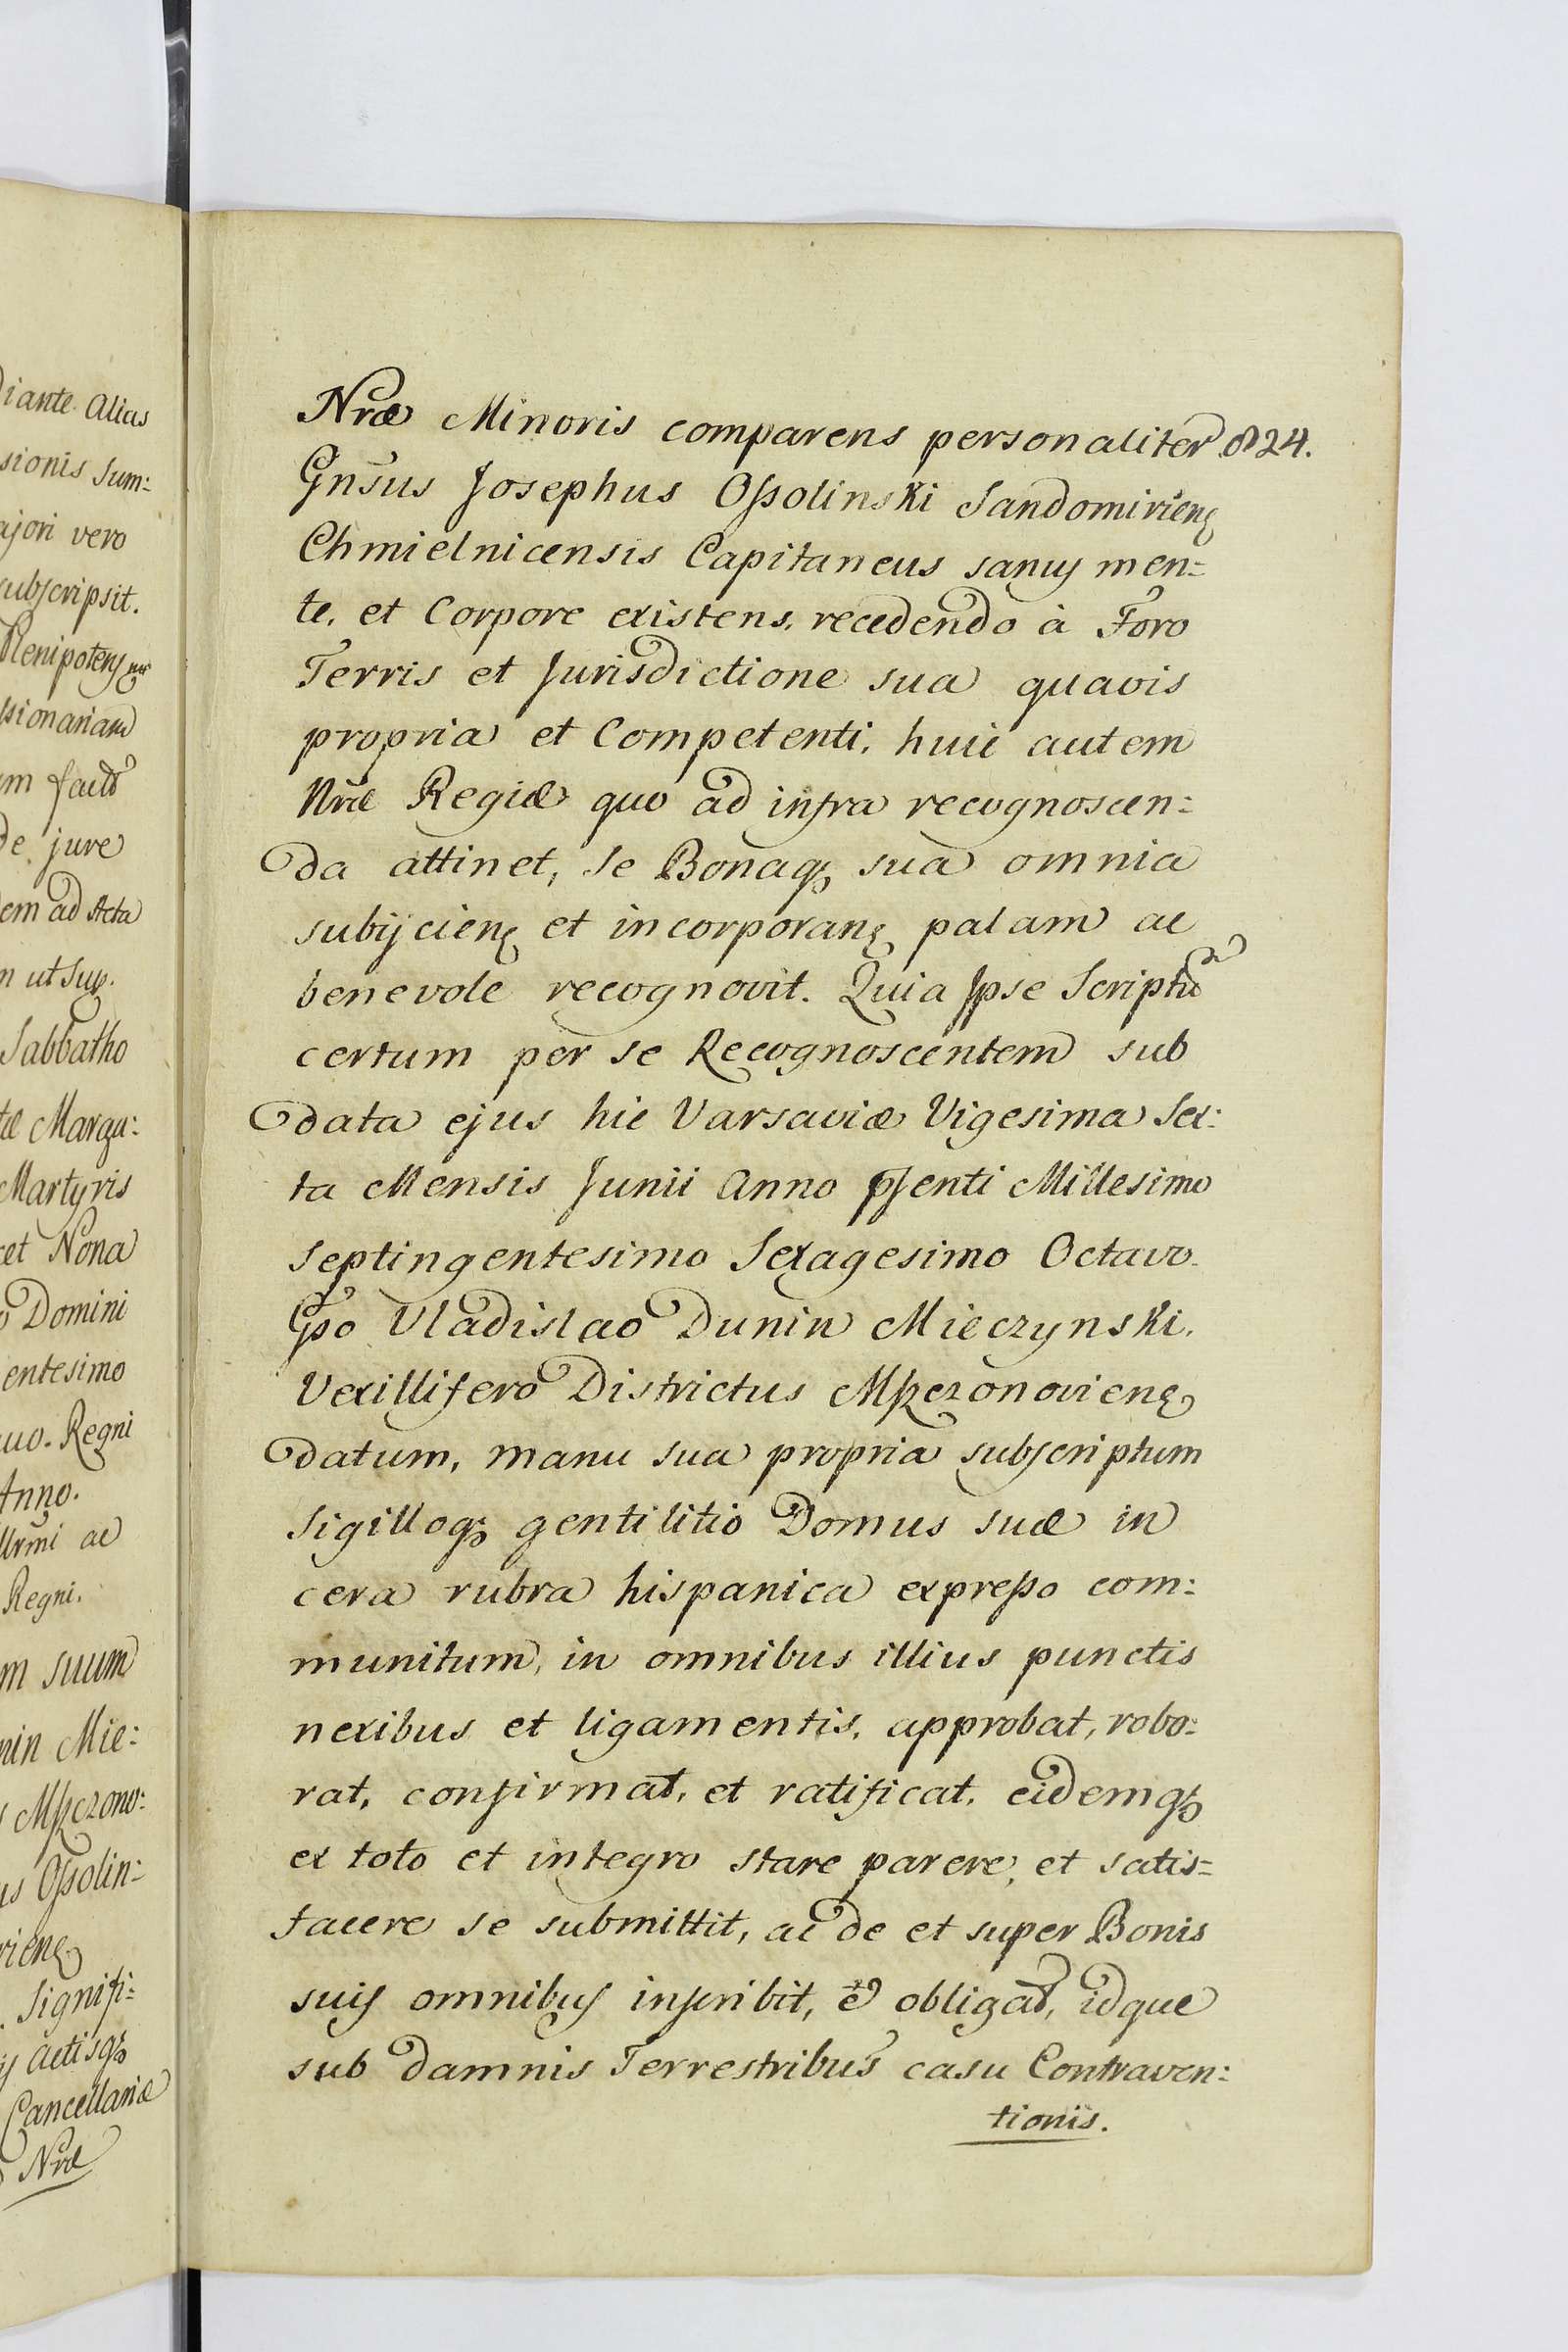 diante Alias
sionis Sum:
ajori vero
subscripsit.
Plenipotens
ssionariam
um facto
de jure
dem ad Acta
m ut Sup.
Sabbatho
tæ Marga:
Martyris
cet Nona
o Domini
entesimo
uo. Regni
Anno.
Illrmi ac
Regni.
m suum
nin Mie:
Mszczono:
us Ossolin:
riens
Signifi:
Actisq3
Cancellariæ
Nræ
Nræ Minoris comparens personaliter 824.
Gnsus Josephus Ossolinski Sandomiriens
Chmielnicensis Capitaneus sanus men:
te, et Corpore existens, recedendo à Foro
Terris et Jurisdictione sua quavis
propria et Competenti, huic autem
Nræ Regiæ quo ad infra recognoscen:
da attinet, Se Bonaq3 sua omnia
subijciens et incorporans palam ac
benevole recognovit. Quia Ipse Scriptu
certum per se Recognoscentem sub
data ejus hic Varsaviæ Vigesima Sex:
ta Mensis Junii Anno psenti Millesimo
Septingentesimo Sexagesimo Octavo.
Gso Vladislao Dunin Mieczynski.
Vexillifero Districtus Mszczonoviens
datum, manu sua propria subscriptum
Sigilloq3 gentilitio Domus suæ in
cera rubra hispanica expresso com:
munitum, in omnibus illius punctis
nexibus et ligamentis, approbat, robo:
rat, confirmat, et ratificat, eidemq3
ex toto et integro stare parere, et satis=
facere se submittit, ac de et super Bonis
suis omnibus inscribit, et obligat, idque
sub damnis Terrestribus casu Contraven:
tionis.